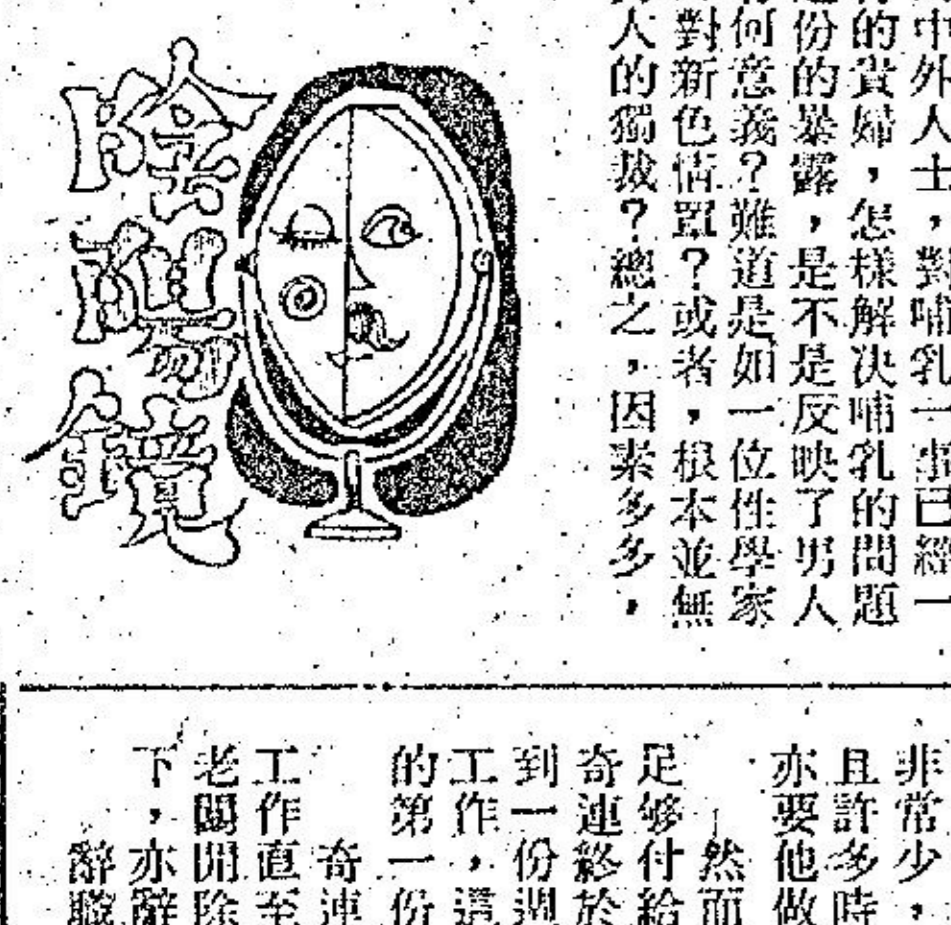 中外人士，對哺乳一事已經一
的貴婦，怎樣解決哺乳的問題
份的暴露，是不是反映了男人
何意義？難道是如一位性學家
對新色情罩？或者，根本並無
人的獨裁？總之，因素多多，
陰陽鏡
非常少，
且許多時
亦要他做
然而
足够付給
奇連終於
到一份週
工作，這
的第一份
奇連
工作直至
老闆開除
下，亦辭
辭職